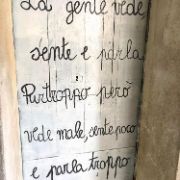 La gente vede,
sente e parla
Purtroppo però
vede male, sente poco
e parla troppo